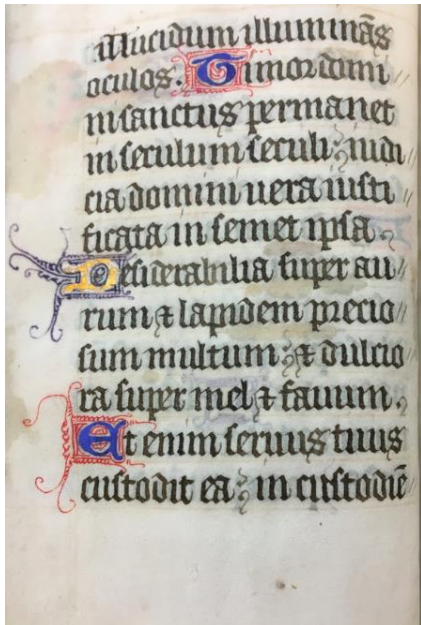 lucidum illuminās
oculos. Timor domi
ni sanctus permanet
in seculum seculi: iudi
cia domini uera iusti
ficata in semet ipsa.
Desiderabilia super au
rum ⁊ lapidem precio
sum multum: ⁊ dulcio
ra super mel ⁊ fauum.
Et enim seruus tuus
custodit ea: in custodiē